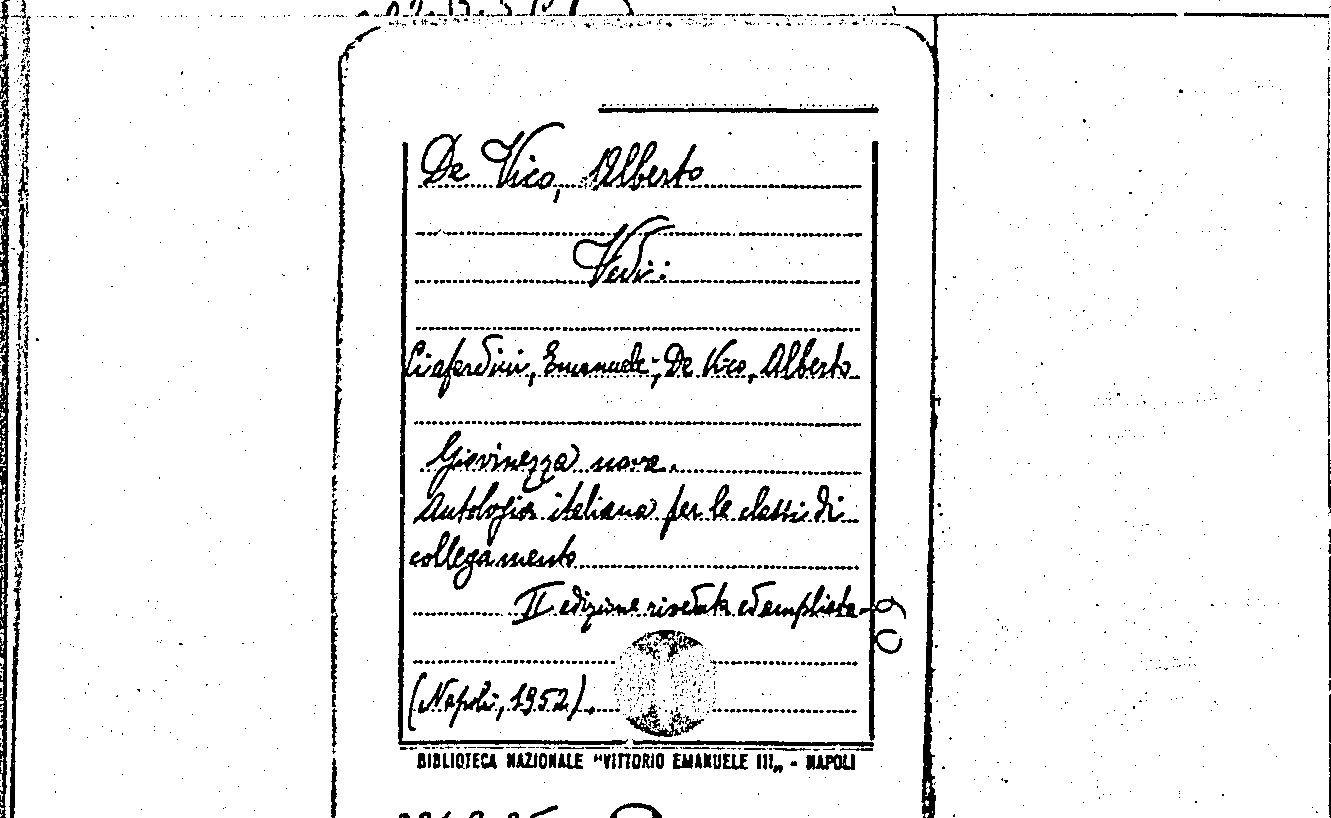 De Vico, Alberto
Vedi:
Ciafardini, Emanuele; De Vico, Alberto
Giovinezza nova.
Antologia italiana per le classi di
collegamento
II edizione riveduta ed ampliata
(Napoli, 1952).
BIBLIOTECA NAZIONALE "VITTORIO EMANUELE III„ - NAPOLI